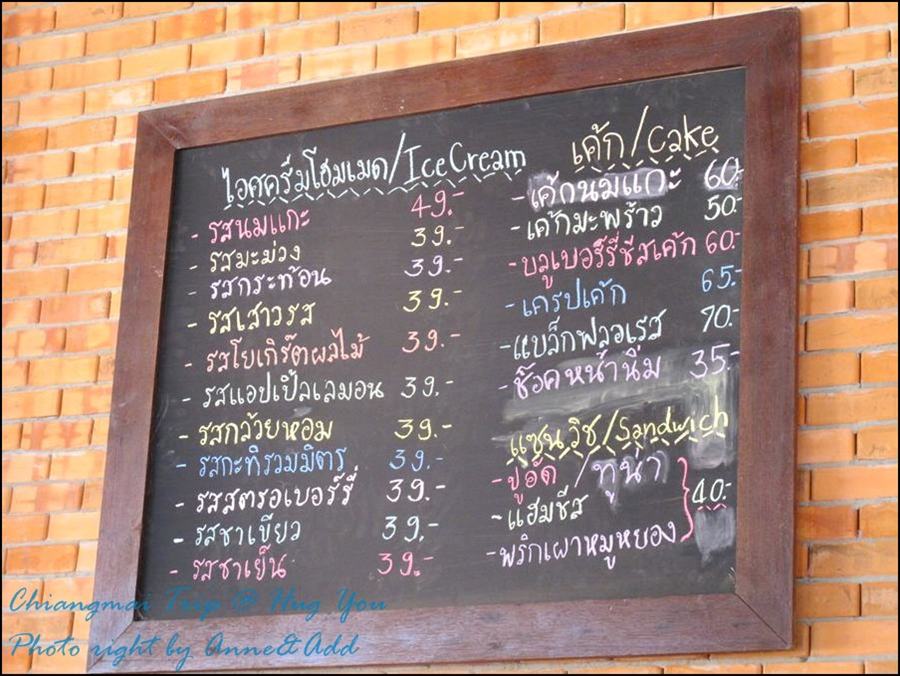 ไอศครีมโฮมเมด/Ice Cream
- รสนมแกะ 49.-
- รสมะม่วง 39.-
- รสกระท้อน 39.-
- รสเสาวรส 39.-
- รสโยเกิร์ตผลไม้ 39.-
- รสแอปเปิ้ลเลมอน 39.-
- รสกล้วยหอม 39.-
- รสกะทิรวมมิตร 39.-
- รสสตรอเบอร์รี่ 39.-
- รสชาเขียว 39.-
- รสชาเย็น 39.-
เค้ก/Cake
- เค้กนมแกะ 60.-
- เค้กมะพร้าว 50.-
- บลูเบอร์รี่ชีสเค้ก 60.-
- เครปเค้ก 65.-
- แบล็กฟลอเรส 70.-
- ช๊อคหน้านิ่ม 35.-
แซนวิช/Sandwich
- ปูอัด /ทูน่า
- แฮมชีส 40.-
- พริกเผาหมูหยอง
Chiangmai Trip @ Hug You
Photo right by Anne&Add